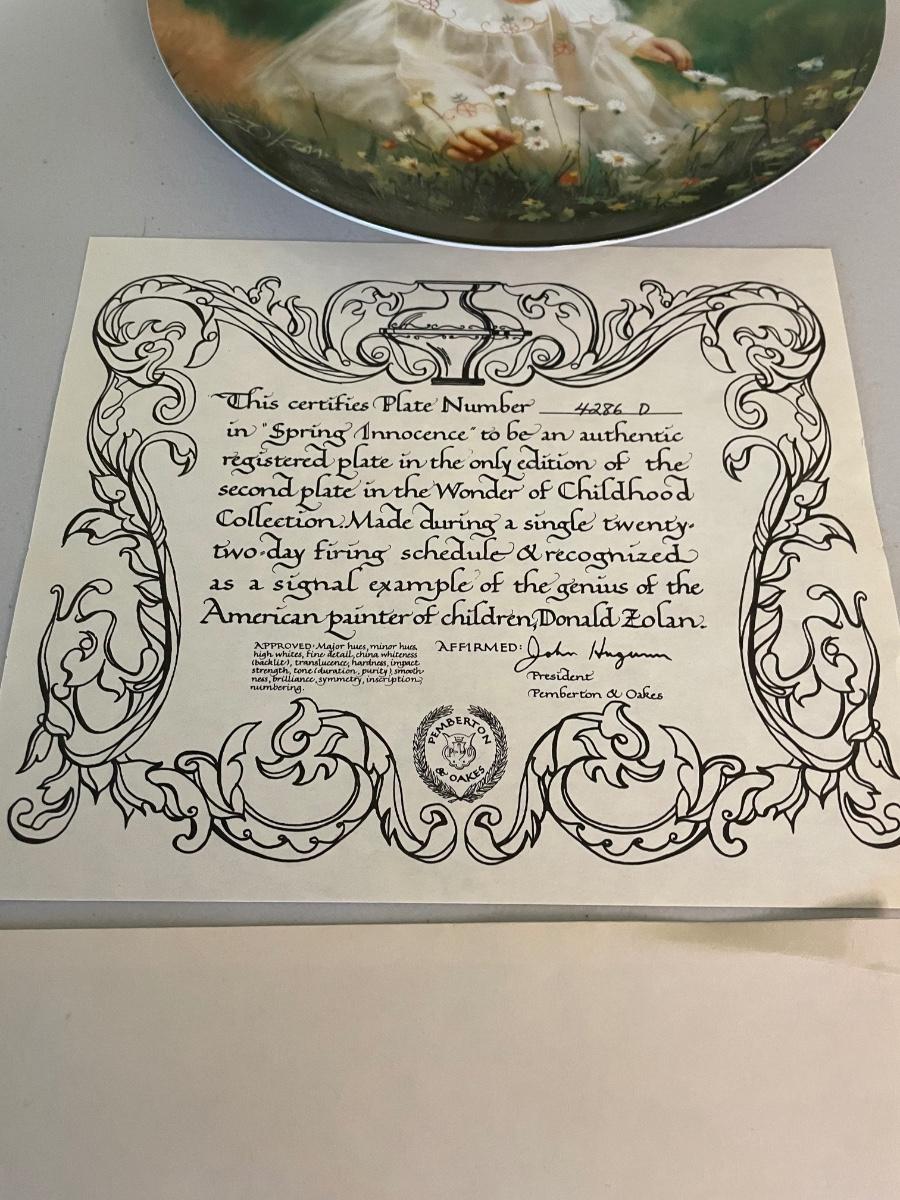 Zolan
This certifies Plate Number 4286 D
in "Spring Innocence" to be an authentic
registered plate in the only edition of the
second plate in the Wonder of Childhood
Collection. Made during a single twenty-
two-day firing schedule & recognized
as a signal example of the genius of the
American painter of children, Donald Zolan.
APPROVED: Major hues, minor hues,
high whites, fine detail, china whiteness
(backlit), translucence, hardness, impact
strength, tone (duration, purity), smooth-
ness, brilliance, symmetry, inscription,
numbering.
AFFIRMED: John Hugunin
President
Pemberton & Oakes
PEMBERTON
& OAKES